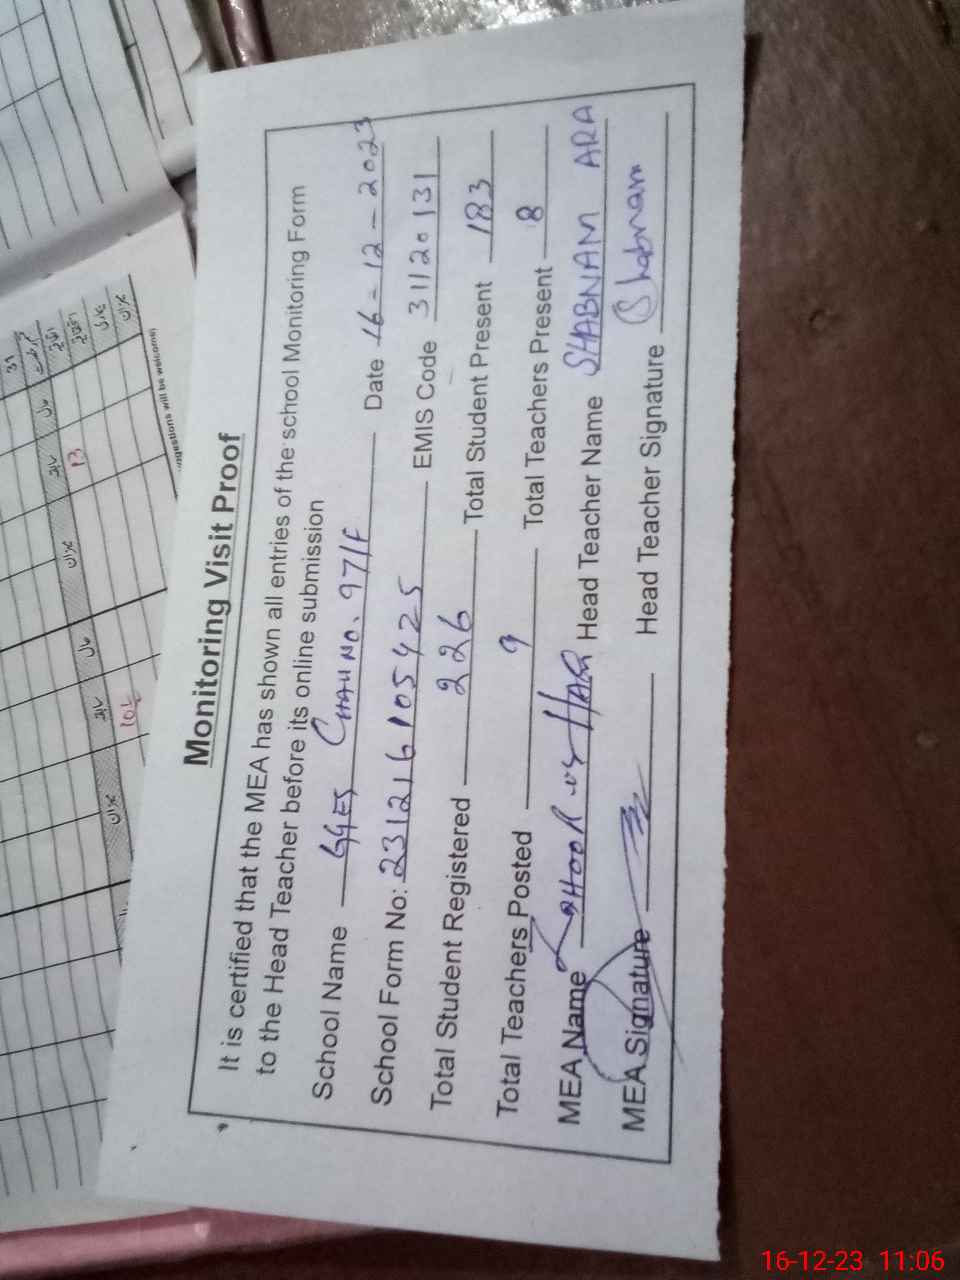 Monitoring Visit Proof
It is certified that the MEA has shown all entries of the school Monitoring Form
to the Head Teacher before its online submission
School Name GGES CHAK NO. 97/F Date 16-12-2023
School Form No: 231216105425 EMIS Code 31120131
Total Student Registered 226 Total Student Present 183
Total Teachers Posted 9 Total Teachers Present 8
MEA Name HAQ Head Teacher Name SHABNAM ARA
MEA Signature Head Teacher Signature Shabnam
suggestions will be welcome)
13
16-12-23 11:06